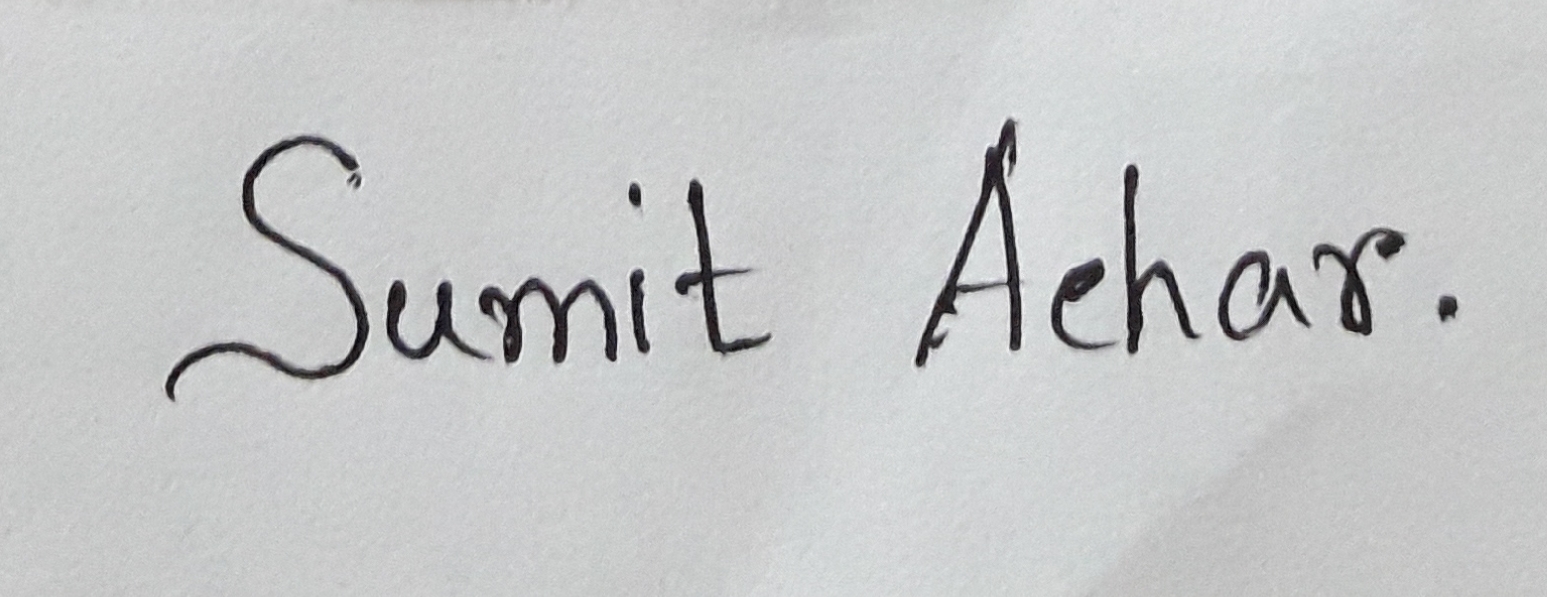 Sumit Achar.